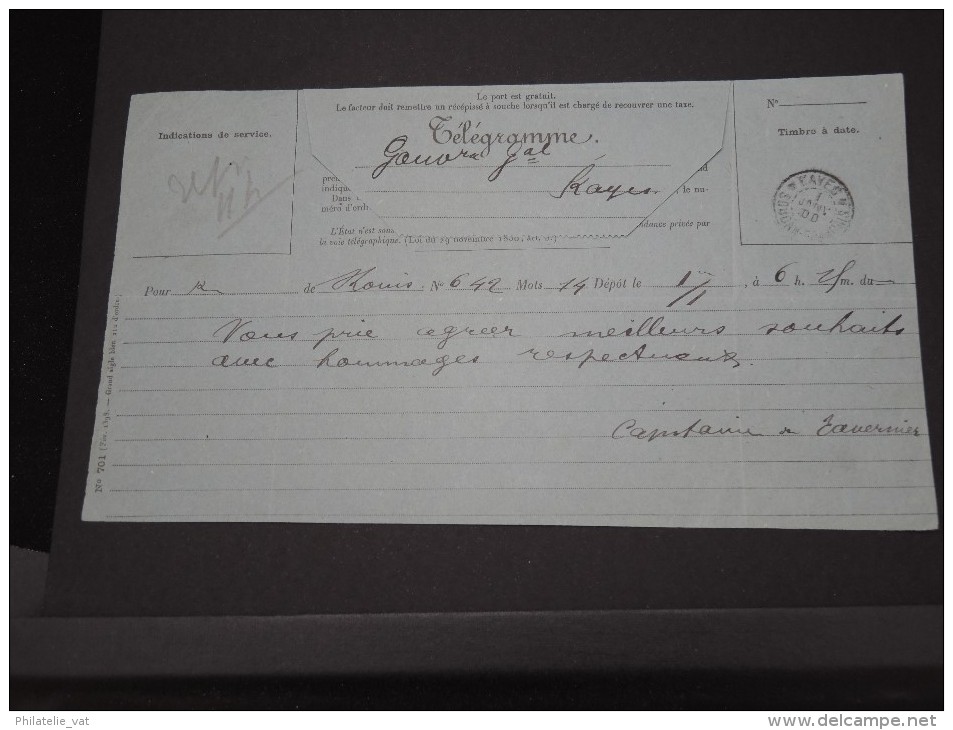 Le port est gratuit.
Le facteur doit remettre un récépissé à souche lorsqu'il est chargé de recouvrer une taxe.
Indications de service.
Télégramme.
Gouvr gal
Kayes
N°
Timbre à date.
KAYES
pren
indiqu
le nu-
Dans
méro d'ord
L'État n'est sou
dance privée par
la voie télégraphique. (Loi du 29 novembre 1850, Art. 6.)
Pour K de Kouis N° 642 Mots 14 Dépôt le 1/1, à 6 h. m. du
Vous prie agréer meilleurs souhaits
avec hommages respectueux.
Capitaine de Tavernier
N° 701
Philatelie_vat
www.delcampe.net